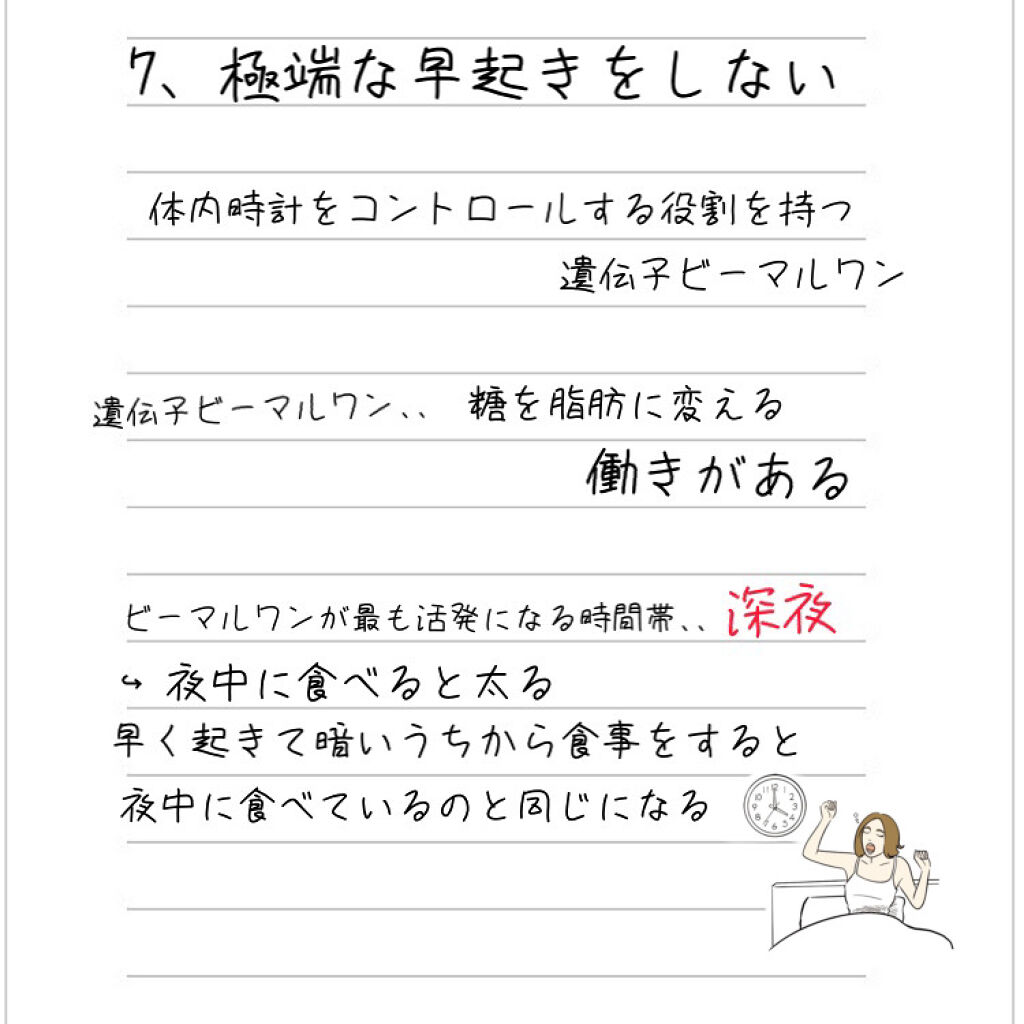 7、極端な早起きをしない
体内時計をコントロールする役割を持つ
遺伝子ビーマルワン
遺伝子ビーマルワン、、 糖を脂肪に変える
働きがある
ビーマルワンが最も活発になる時間帯、、 深夜
↪ 夜中に食べると太る
早く起きて暗いうちから食事をすると
夜中に食べているのと同じになる